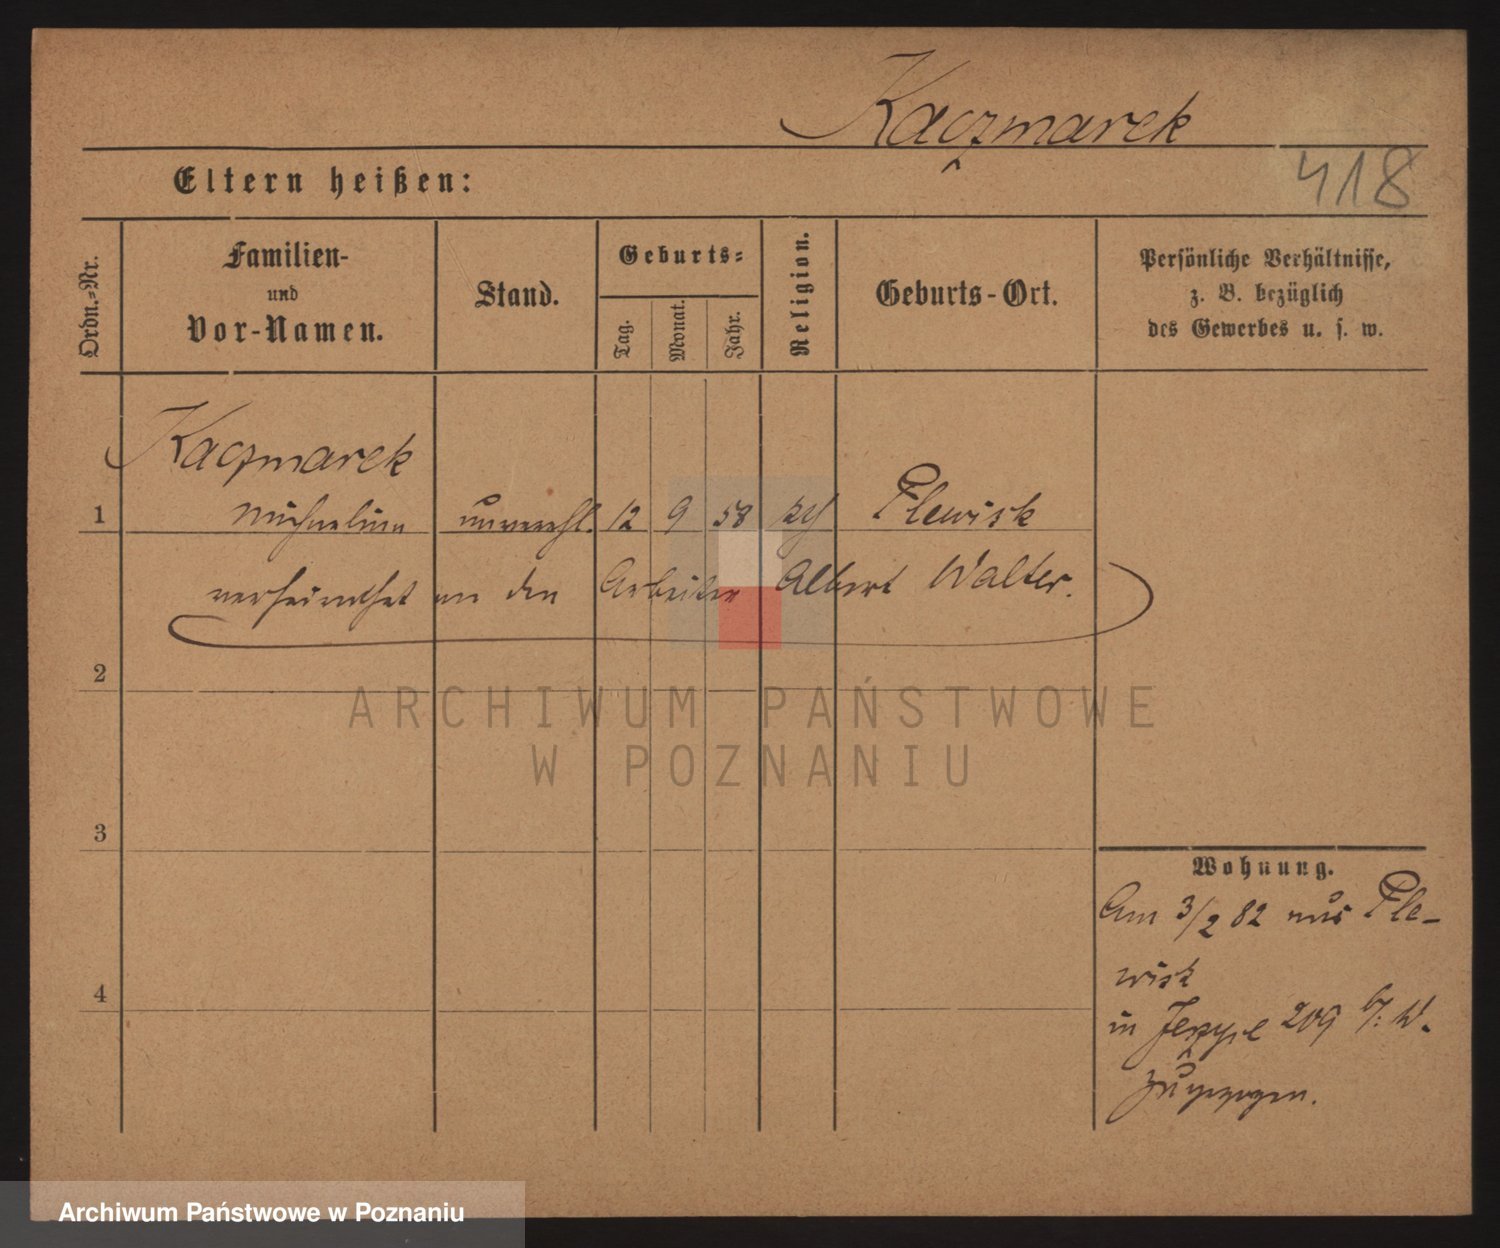 Kaczmarek
418
Eltern heißen:
Ordn.-Nr.
Familien-
und
Vor-Namen.
Stand.
Geburts-
Tag.
Monat.
Jahr.
Religion.
Geburts-Ort.
Persönliche Verhältnisse,
z. B. bezüglich
des Gewerbes u. s. w.
Kaczmarek
1 Michalina unverehl. 12 9 58 Plewisk
verheirathet an den Arbeiter Albert Walter.
2
ARCHIWUM PAŃSTWOWE
W POZNANIU
3
Wohnung.
Am 3/2 82 aus Ple-
wisk
4
in 209 b. W.
zugezogen.
Archiwum Państwowe w Poznaniu